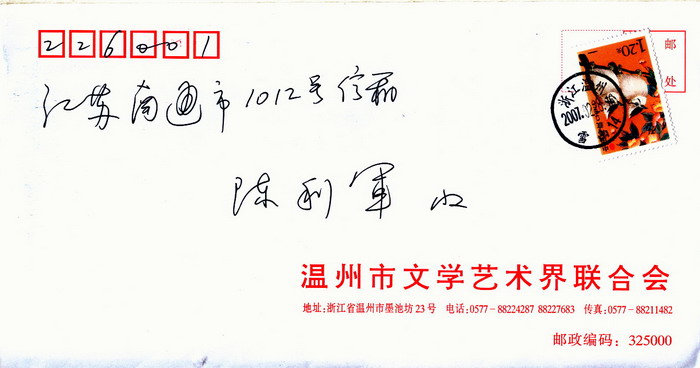 226001
1.20元
邮
处
浙江温州
2007.02
江苏南通市1012号信箱
陈利军 收
温州市文学艺术界联合会
地址:浙江省温州市墨池坊23号 电话:0577-88224287 88227683 传真:0577-88211482
邮政编码：325000